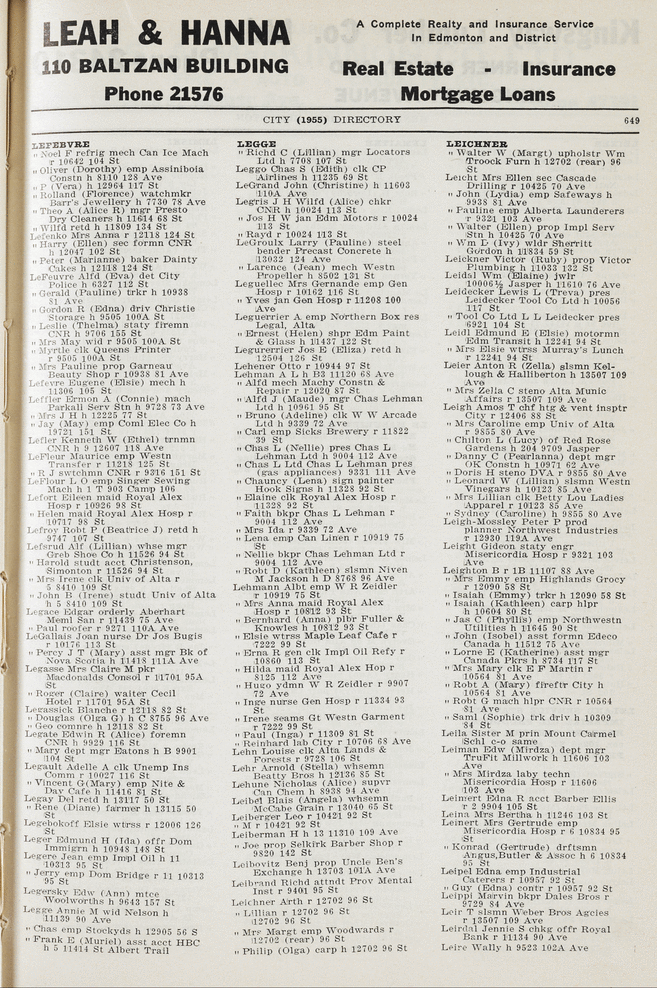 LEAH & HANNA
110 BALTZAN BUILDING
Phone 21576
A Complete Realty and Insurance Service
In Edmonton and District
Real Estate - Insurance
Mortgage Loans
CITY (1955) DIRECTORY
649
LEFEBVRE
" Noel F refrig mech Can Ice Mach
r 10642 104 St
" Oliver (Dorothy) emp Assiniboia
Constn h 8110 128 Ave
" P (Vera) h 12964 117 St
" Rolland (Florence) watchmkr
Barr's Jewellery h 7730 78 Ave
" Theo A (Alice R) mgr Presto
Dry Cleaners h 11614 68 St
" Wilfd retd h 11809 134 St
Lefenko Mrs Anna r 12118 124 St
" Harry (Ellen) sec formn CNR
h 12047 102 St
" Peter (Marianne) baker Dainty
Cakes h 12118 124 St
LeFeuvre Alfd (Eva) det City
Police h 6327 112 St
" Gerald (Pauline) trkr h 10938
81 Ave
" Gordon R (Edna) driv Christie
Storage h 9505 100A St
" Leslie (Thelma) staty firemn
CNR h 9706 155 St
" Mrs May wid r 9505 100A St
" Myrtle clk Queens Printer
r 9505 100A St
" Mrs Pauline prop Garneau
Beauty Shop r 10938 81 Ave
Lefevre Eugene (Elsie) mech h
11306 105 St
Leffler Ermon A (Connie) mach
Parkall Serv Stn h 9728 73 Ave
" Mrs J H h 12225 77 St
" Jay (May) emp Coml Elec Co h
19721 151 St
Lefler Kenneth W (Ethel) trnmn
CNR h 9 12607 118 Ave
LeFleur Maurice emp Westn
Transfer r 11218 125 St
" R J swtchmn CNR r 9316 151 St
LeFlour L O emp Singer Sewing
Mach h 1 T 903 Camp 106
Lefort Ellen maid Royal Alex
Hosp r 10926 98 St
" Helen maid Royal Alex Hosp r
10717 98 St
Lefroy Robt P (Beatrice J) retd h
9747 107 St
Lefsrud Alf (Lillian) whse mgr
Greb Shoe Co h 11526 94 St
" Harold studt acct Christenson,
Simonton r 11526 94 St
" Mrs Irene clk Univ of Alta r
5 8410 109 St
" John B (Irene) studt Univ of Alta
h 5 8410 109 St
Legace Edgar orderly Aberhart
Meml San r 11439 75 Ave
" Paul roofer r 9271 110A Ave
LeGallais Joan nurse Dr Jos Bugis
r 10176 113 St
" Percy J T (Mary) asst mgr Bk of
Nova Scotia h 11418 111A Ave
Legasse Mrs Claire M pkr
Macdonalds Consol r 11701 95A
St
" Roger (Claire) waiter Cecil
Hotel r 11701 95A St
Legassick Blanche r 12118 82 St
" Douglas (Olga G) h C 8755 96 Ave
" Geo comtre h 12118 82 St
Legate Edwin R (Alice) foremn
CNR h 9929 116 St
" Mary dept mgr Eatons h B 9901
104 St
Legault Adelle A clk Unemp Ins
Comm r 10027 116 St
" Vincent G(Mary) emp Nite &
Day Cafe h 11416 81 St
Legay Del retd h 13117 50 St
" Rene (Diane) farmer h 13115 50
St
Legebokoff Elsie wtrss r 12006 126
St
Leger Edmund H (Ida) offr Dom
Immigrn h 10948 148 St
Legere Jean emp Impl Oil h 11
10313 95 St
" Jerry emp Dom Bridge r 11 10313
95 St
Legersky Edw (Ann) mtce
Woolworths h 9643 157 St
Legge Annie M wid Nelson h
11139 90 Ave
" Chas emp Stockyds h 12905 56 S
" Frank E (Muriel) asst acct HBC
h 5 11414 St Albert Trail
LEGGE
" Richd C (Lillian) mgr Locators
Ltd h 7708 107 St
Leggo Chas S (Edith) clk CP
Airlines h 11235 69 St
LeGrand John (Christine) h 11603
110A Ave
Legris J H Wilfd (Alice) chkr
CNR h 10024 113 St
" Jos H W jan Edm Motors r 10024
113 St
" Rayd r 10024 113 St
LeGroulx Larry (Pauline) steel
bender Precast Concrete h
13032 124 Ave
" Larence (Jean) mech Westn
Propeller h 8502 131 St
Leguellec Mrs Gernande emp Gen
Hosp r 10162 116 St
" Yves jan Gen Hosp r 11208 100
Ave
Leguerrier A emp Northern Box res
Legal, Alta
" Ernest (Helen) shpr Edm Paint
& Glass h 11437 122 St
Legurerrier Jos E (Eliza) retd h
12504 126 St
Lehener Otto r 10944 97 St
Lehman A L h B3 11120 68 Ave
" Alfd mech Machy Constn &
Repair r 12020 87 St
" Alfd J (Maude) mgr Chas Lehman
Ltd h 10961 95 St
" Bruno (Adeline) clk W W Arcade
Ltd h 9339 72 Ave
" Carl emp Sicks Brewery r 11822
39 St
" Chas L (Nellie) pres Chas L
Lehman Ltd h 9004 112 Ave
" Chas L Ltd Chas L Lehman pres
(gas appliances) 9331 111 Ave
" Chauncy (Lena) sign painter
Hook Signs h 11328 92 St
" Elaine clk Royal Alex Hosp r
11328 92 St
" Faith bkpr Chas L Lehman r
9004 112 Ave
" Mrs Ida r 9339 72 Ave
" Lena emp Can Linen r 10919 75
St
" Nellie bkpr Chas Lehman Ltd r
9004 112 Ave
" Robt D (Kathleen) slsmn Niven
M Jackson h D 8768 96 Ave
Lehmann Albt emp W R Zeidler
r 10919 75 St
" Mrs Anna maid Royal Alex
Hosp r 10812 93 St
" Bernhard (Anna) plbr Fuller &
Knowles h 10812 93 St
" Elsie wtrss Maple Leaf Cafe r
7222 99 St
" Erna R gen clk Impl Oil Refy r
10860 113 St
" Hilda maid Royal Alex Hop r
8125 112 Ave
" Hugo ydmn W R Zeidler r 9907
72 Ave
" Inge nurse Gen Hosp r 11334 93
St
" Irene seams Gt Westn Garment
r 7222 99 St
" Paul (Inga) r 11309 81 St
" Reinhard lab City r 10706 68 Ave
Lehn Louise clk Alta Lands &
Forests r 9728 106 St
Lehr Arnold (Stella) whsemn
Beatty Bros h 12136 85 St
Lehune Nicholas (Alice) supvr
Can Chem h 8938 94 Ave
Leibel Blais (Angela) whsemn
McCabe Grain r 13040 65 St
Leiberger Leo r 10421 92 St
" M r 10421 92 St
Leiberman H h 13 11310 109 Ave
" Joe prop Selkirk Barber Shop r
9820 142 St
Leibovitz Benj prop Uncle Ben's
Exchange h 13703 101A Ave
Leibrand Richd attndt Prov Mental
Inst r 9401 95 St
Leichner Arth r 12702 96 St
" Lillian r 12702 96 St
12702 96 St
" Mrs Margt emp Woodwards r
12702 (rear) 96 St
" Philip (Olga) carp h 12702 96 St
LEICHNER
" Walter W (Margt) upholstr Wm
Troock Furn h 12702 (rear) 96
St
Leicht Mrs Ellen sec Cascade
Drilling r 10425 70 Ave
" John (Lydia) emp Safeways h
9938 81 Ave
" Pauline emp Alberta Launderers
r 9321 103 Ave
" Walter (Ellen) prop Impl Serv
Stn h 10425 70 Ave
" Wm D (Ivy) wldr Sherritt
Gordon h 11834 59 St
Leickner Victor (Ruby) prop Victor
Plumbing h 11033 132 St
Leidal Wm (Elaine) jwlr
10006½ Jasper h 11610 76 Ave
Leidecker Lewis L (Treva) pres
Leidecker Tool Co Ltd h 10056
117 St
" Tool Co Ltd L L Leidecker pres
6921 104 St
Leidl Edmund E (Elsie) motormn
Edm Transit h 12241 94 St
" Mrs Elsie wtrss Murray's Lunch
r 12241 94 St
Leier Anton R (Zella) slsmn Kel-
lough & Halliberton h 13507 109
Ave
" Mrs Zella C steno Alta Munic
Affairs r 13507 109 Ave
Leigh Amos T chf htg & vent insptr
City r 12406 88 St
" Mrs Caroline emp Univ of Alta
r 9855 80 Ave
" Chilton L (Lucy) of Red Rose
Gardens h 204 9709 Jasper
" Danny C (Pearlanna) dept mgr
OK Constn h 10971 62 Ave
" Doris H steno DVA r 9855 80 Ave
" Leonard W (Lillian) slsmn Westn
Vinegars h 10123 85 Ave
" Mrs Lillian clk Betty Lou Ladies
Apparel r 10123 85 Ave
" Sydney (Caroline) h 9855 80 Ave
Leigh-Mossley Peter P prod
planner Northwest Industries
r 12930 119A Ave
Leight Gideon staty engr
Misericordia Hosp r 9321 103
Ave
Leighton B r 1B 11107 88 Ave
" Mrs Emmy emp Highlands Grocy
r 12090 58 St
" Isaiah (Emmy) trkr h 12090 58 St
" Isaiah (Kathleen) carp hlpr
h 10604 80 St
" Jas C (Phyllis) emp Northwestn
Utilities h 11645 90 St
" John (Isobel) asst formn Edeco
Canada h 11512 75 Ave
" Lorne E (Katherine) asst mgr
Canada Pkrs h 8734 117 St
" Mrs Mary clk E F Martin r
10564 81 Ave
" Robt A (Mary) fireftr City h
10564 81 Ave
" Robt G mach hlpr CNR r 10564
81 Ave
" Saml (Sophie) trk driv h 10309
84 St
Leila Sister M prin Mount Carmel
Schl c-o same
Leiman Edw (Mirdza) dept mgr
TruFit Millwork h 11606 103
Ave
" Mrs Mirdza laby techn
Misericordia Hosp r 11606
103 Ave
Leinert Edna R acct Barber Ellis
r 2 9904 105 St
Leina Mrs Bertha h 11246 103 St
Leinert Mrs Gertrude emp
Misericordia Hosp r 6 10834 95
St
" Konrad (Gertrude) drftsmn
Angus,Butler & Assoc h 6 10834
95 St
Leipel Edna emp Industrial
Caterers r 10957 92 St
" Guy (Edna) contr r 10957 92 St
Leippi Marvin bkpr Dales Bros r
9729 84 Ave
Leir T slsmn Weber Bros Agcies
r 13507 109 Ave
Leirdal Jennie S chkg offr Royal
Bank r 11134 90 Ave
Leire Wally h 9523 102A Ave